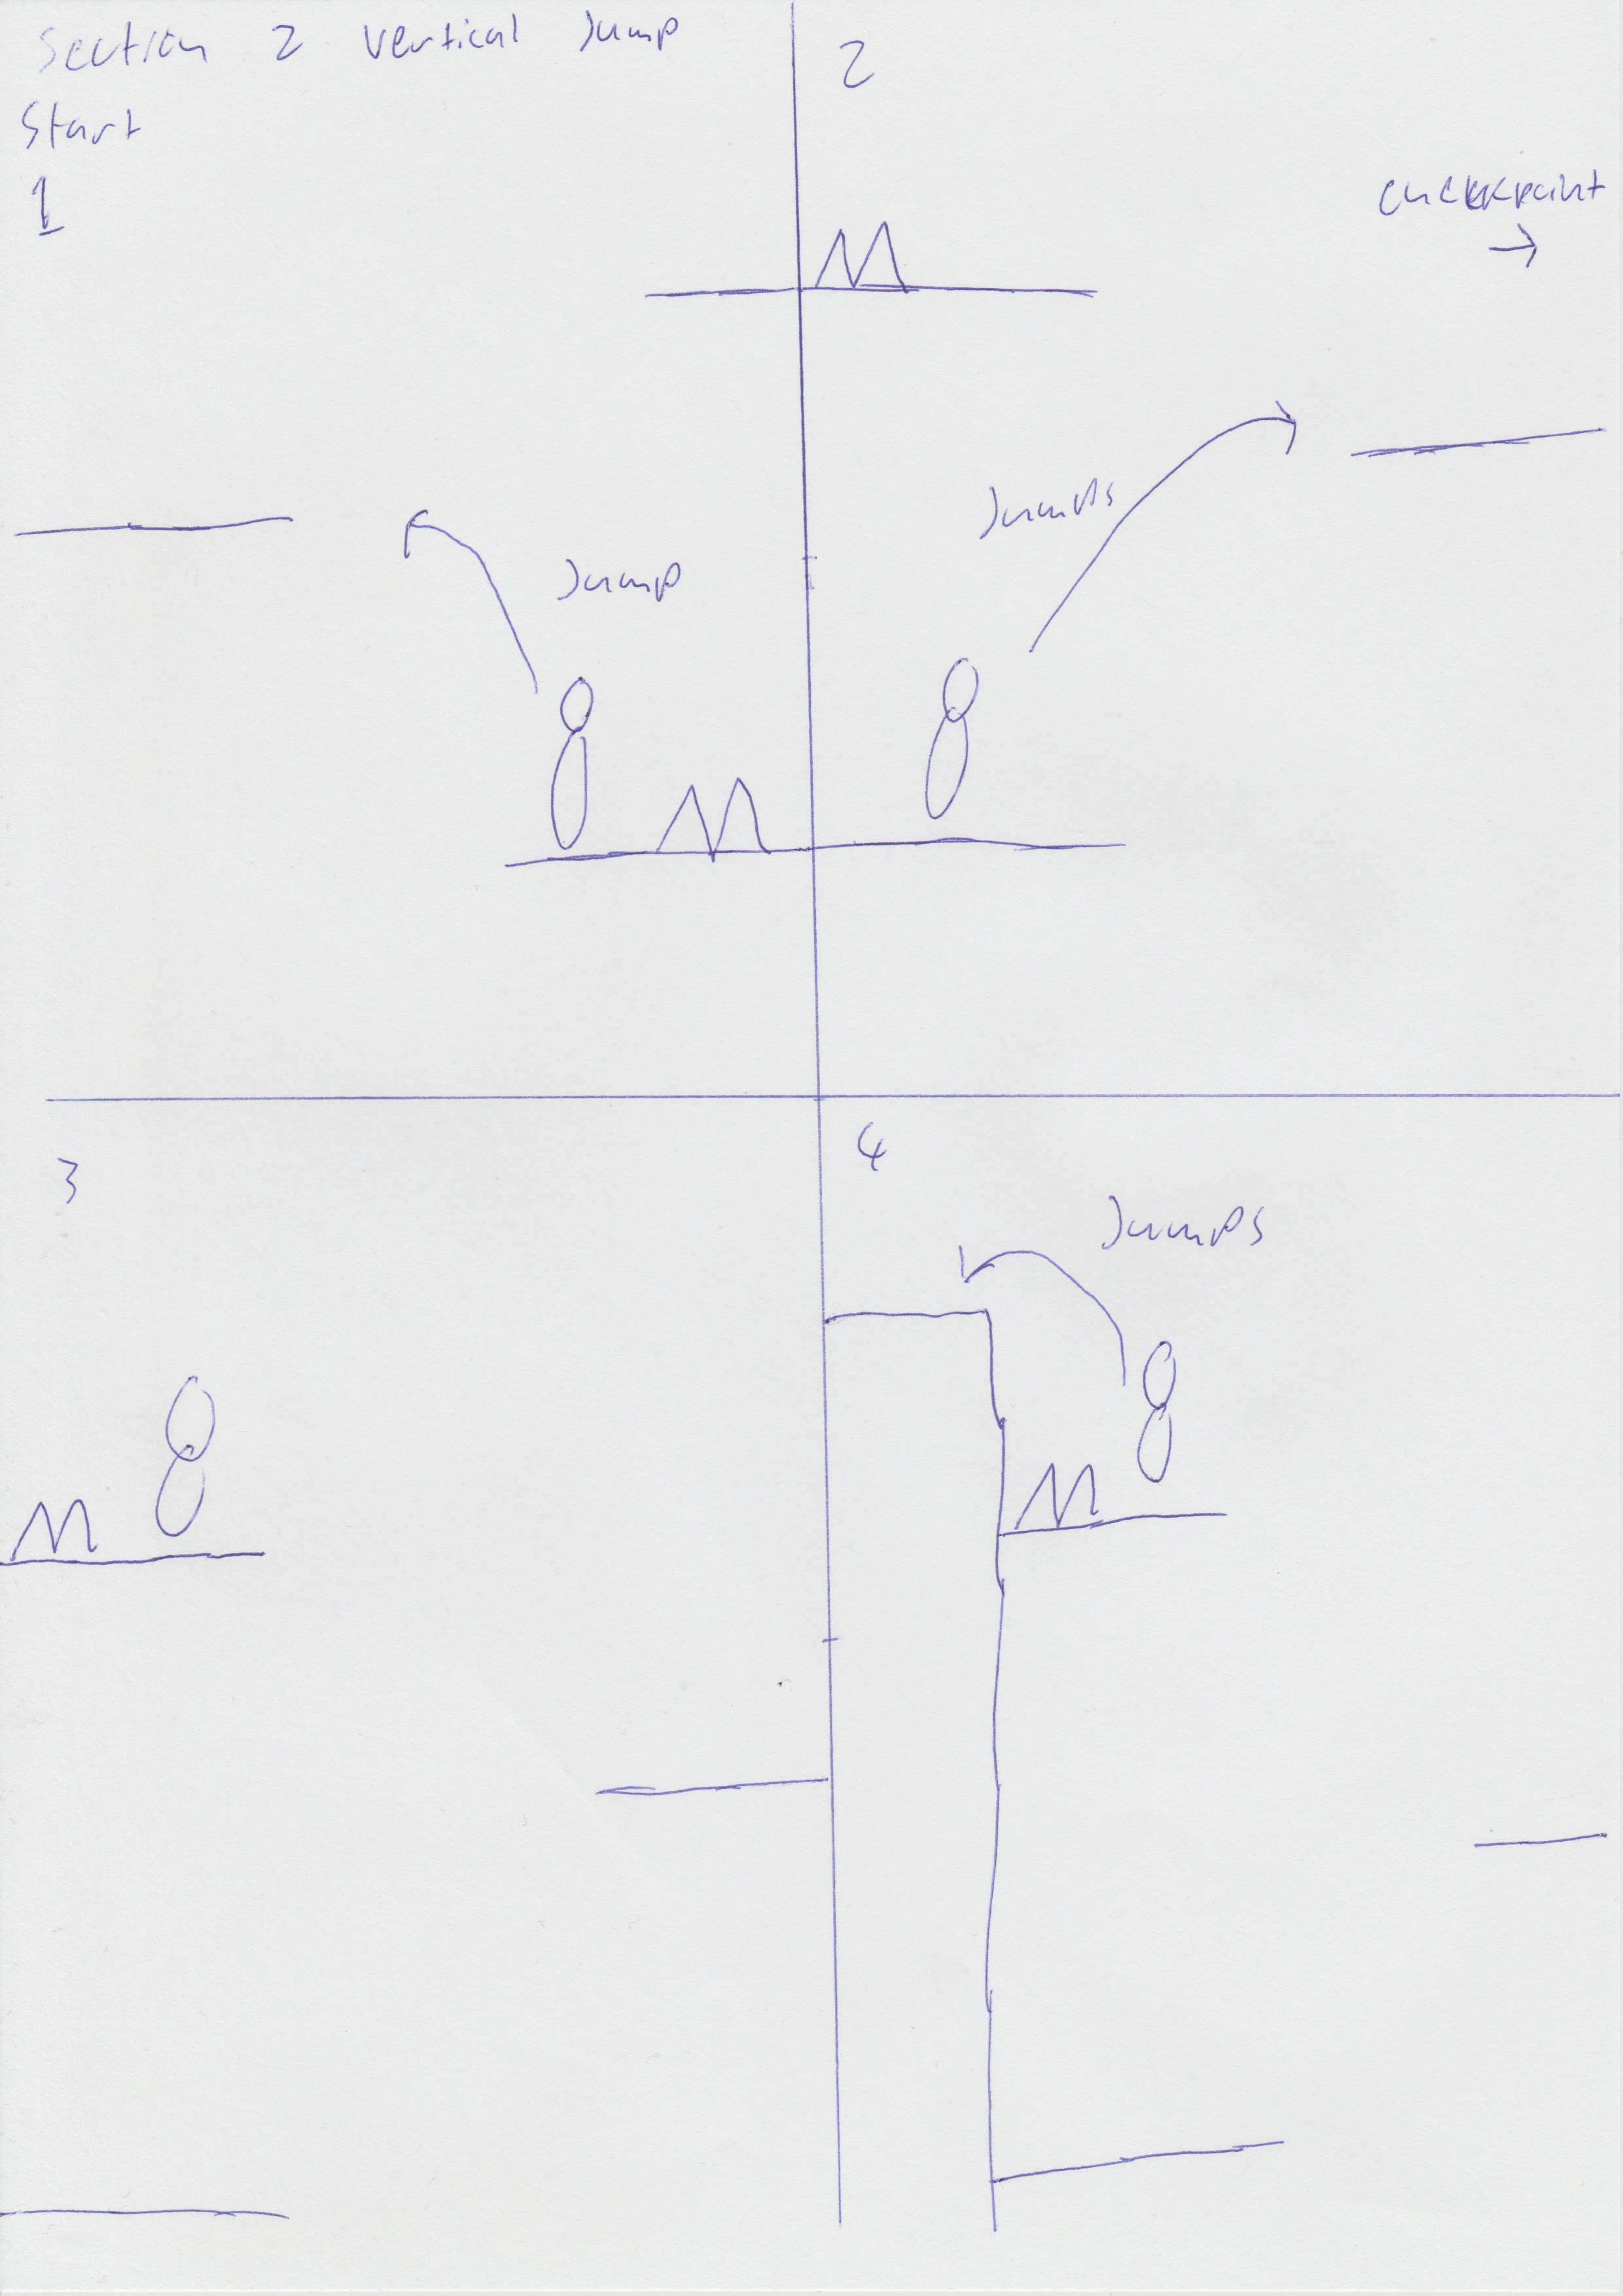 Section 2 vertical Jump
Start
1
Jump
2
checkpoint
Jumps
3
4
Jumps